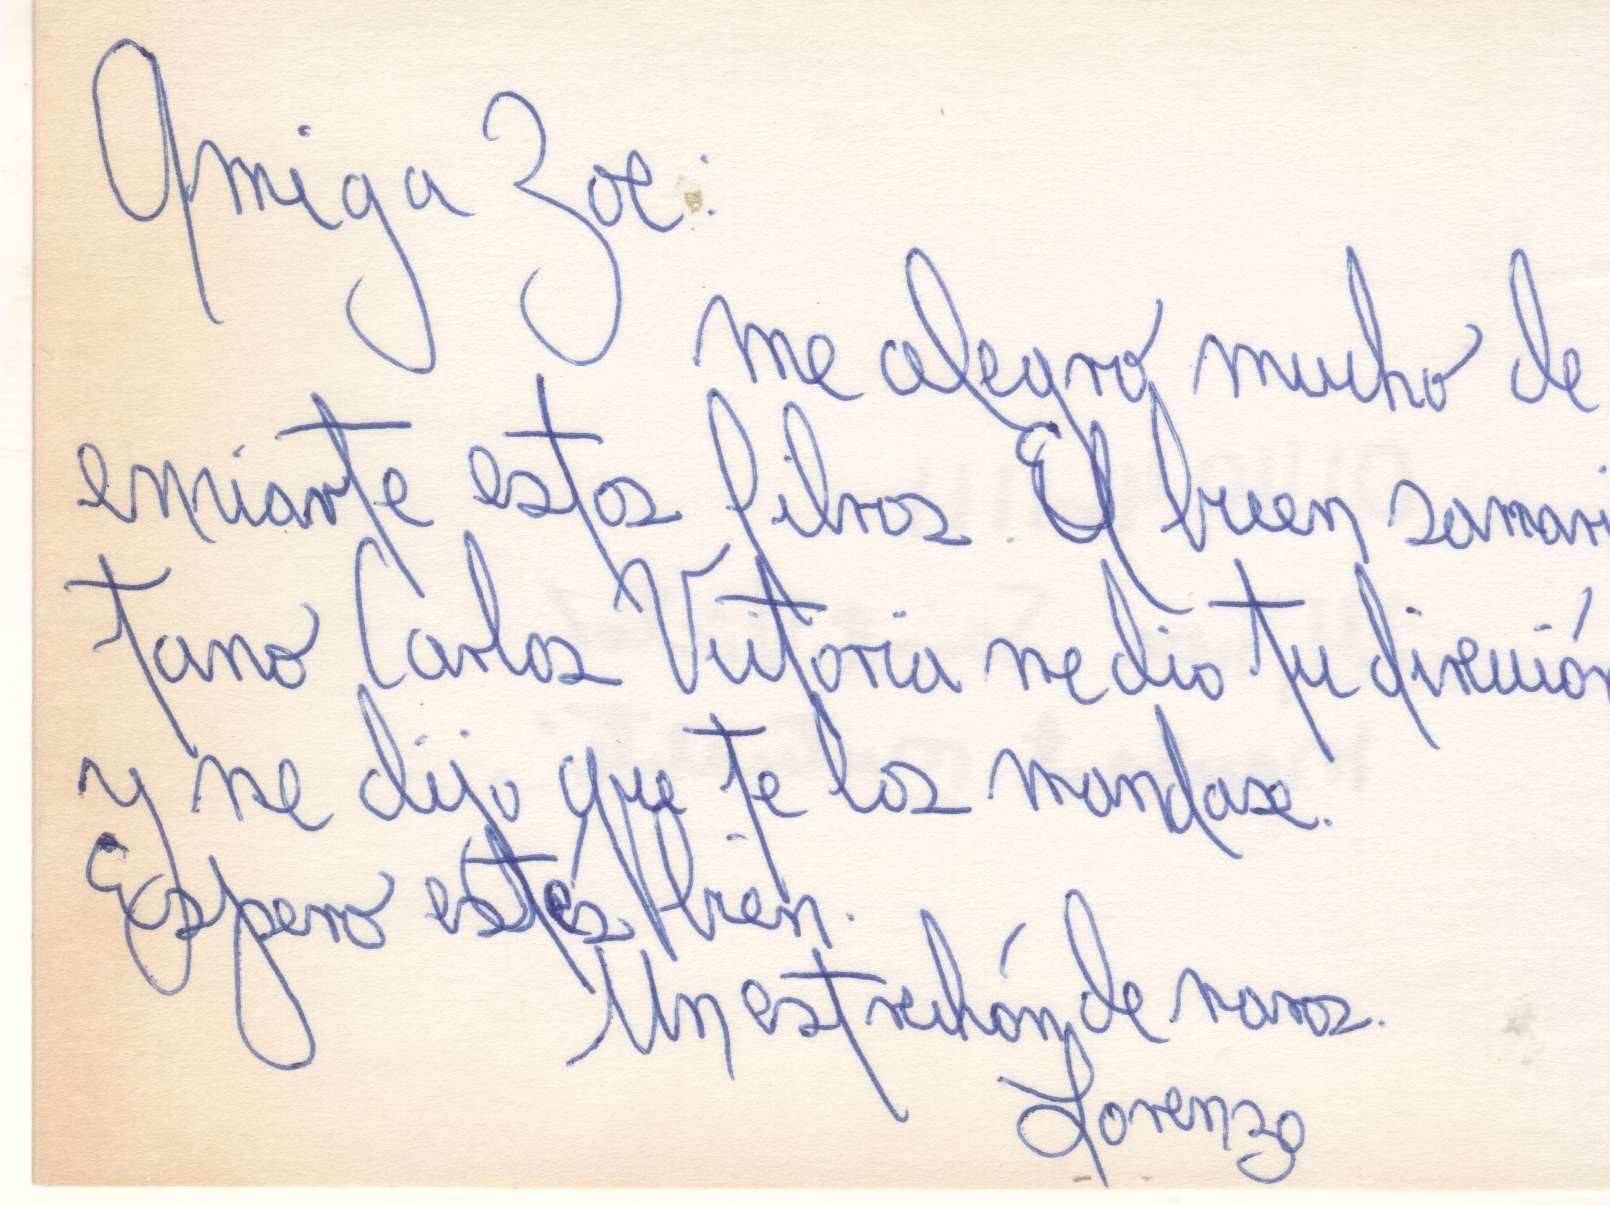 Amiga Zoe:
me alegró mucho de
enviarte estos libros. El buen samari
tano Carlos Victoria me dio tu dirección
y me dijo que te los mandase.
Espero estés bien.
Un estrechón de manos.
Lorenzo